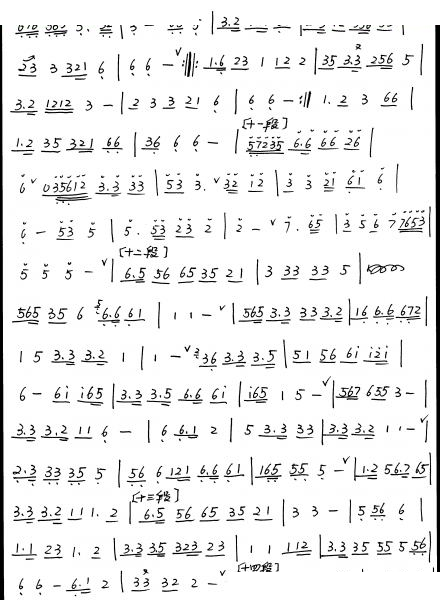 23 3 321 6 | 6 6 - ᵛ :‖: 1.6 23 1 12 2 | 35 3.3 256 5 |
3.2 1212 3 - | 2 3 3 21 6 | 6 6 - :‖ 1. 2 3 66 |
[十一段]
1.2 35 321 66 | 36 6 6 - | 57235 6.6 66 26 |
6 ᵛ 035612 3.3 33 | 53 3. ᵛ 32 12 | 3 3 21 61 6 |
6 - 53 5 | 5. 53 23 2 | 2 - ᵛ 7. 65 | 3 5 6 7 7653 |
[十二段]
5 5 5 - ᵛ | 6.5 56 65 35 21 | 3 33 33 5 |
565 35 6 5 6.6 61 | 1 1 - ᵛ | 565 3.3 33 3.2 | 16 6.6 672 |
1 5 3.3 3.2 1 | 1 - ᵛ 36 3.3 3.5 | 51 56 6i i2i |
6 - 6i i65 | 3.3 3.5 6.6 6i | i65 1 5 - ᵛ | 567 655 3 - |
3.3 3.2 11 6 - | 6 6.1 2 | 5 3.3 33 | 3.3 3.2 1 1 - ᵛ |
2.3 33 35 5 | 56 6 121 6.6 61 | 165 55 5 - ᵛ | 1.2 56.2 65 |
[十三段]
3.3 3.2 11 1. 2 | 6.5 56 65 35 21 | 3 3 - | 5 56 6 |
1.1 23 1. 2 | 3.3 35 323 23 | 1 1 112 | 3.3 35 55 5 56 |
[十四段]
6 6 - 6.1 2 | 33 32 2 - ᵛ